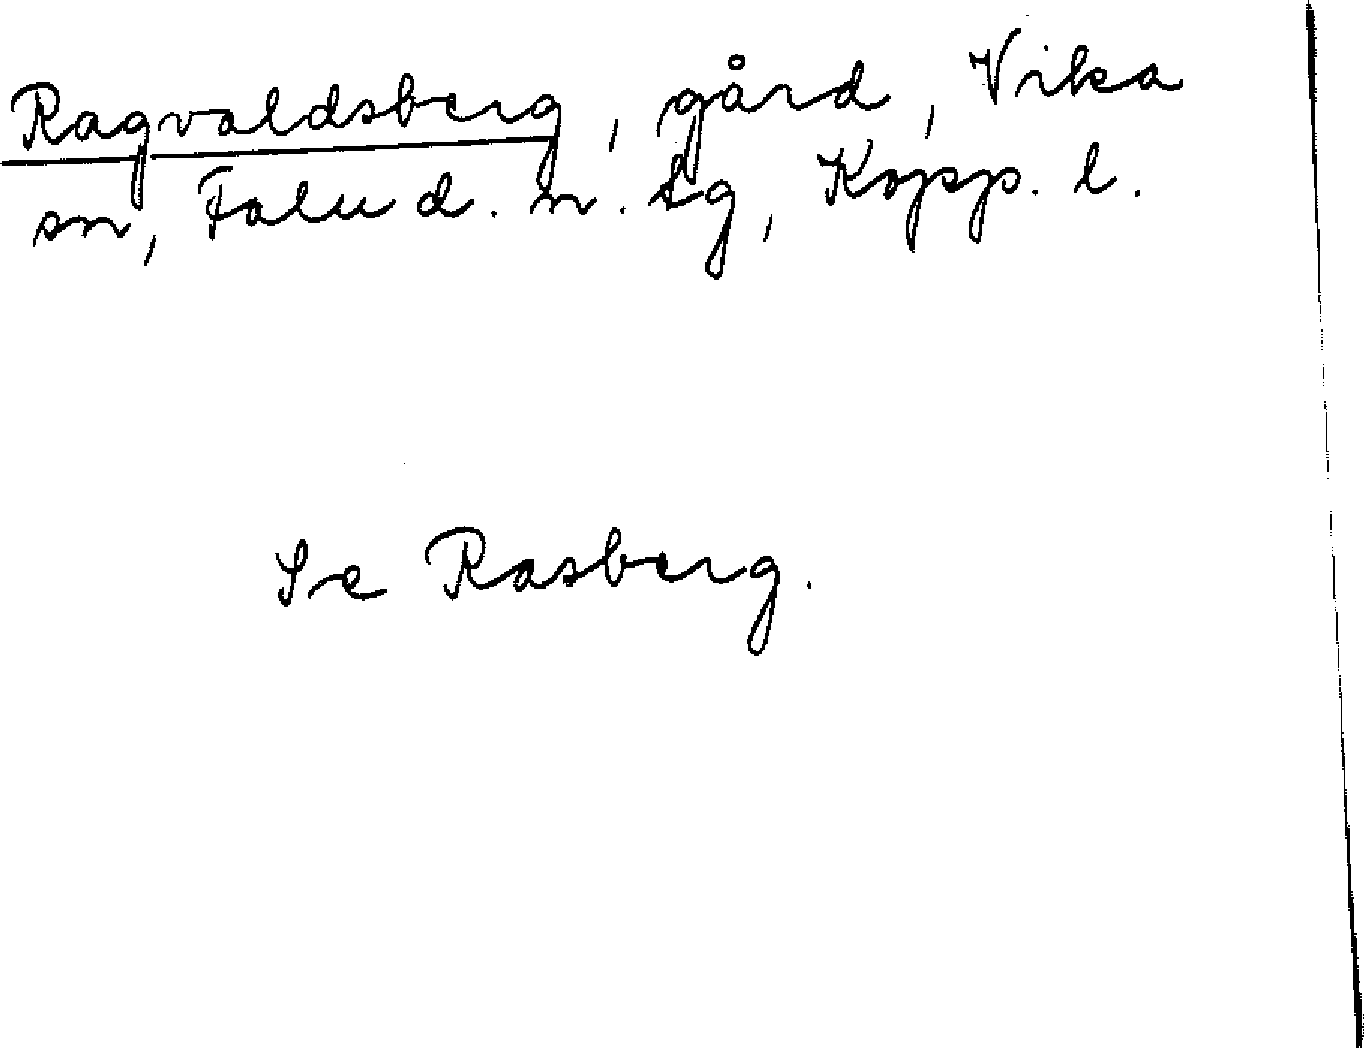 Ragvaldsberg, gård, Vika
sn, Falu d. n. tg, Kopp. l.
Se Rasberg.